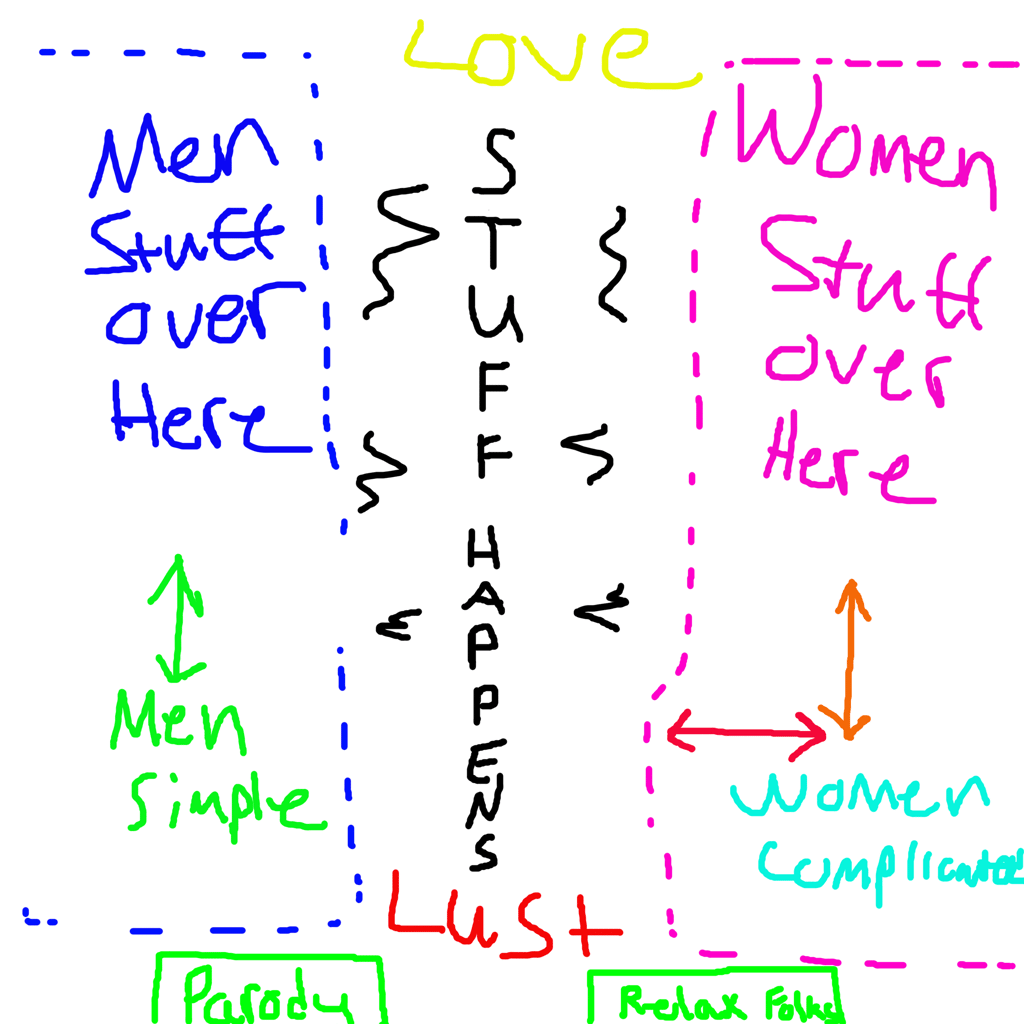 Love
Men
Stuff
over
Here
STUFF HAPPENS
Women
Stuff
over
Here
Men
Simple
Women
Complicated
Lust
Parody
Relax Folks